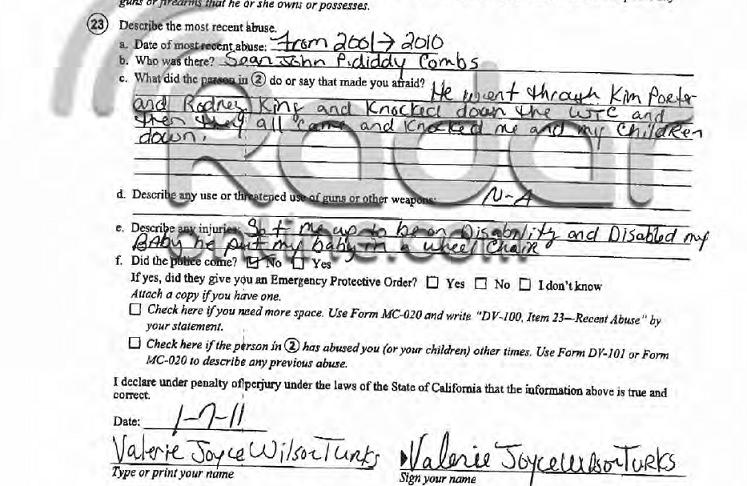 guns or firearms that he or she owns or possesses.
23 Describe the most recent abuse.
a. Date of most recent abuse: from 2001 → 2010
b. Who was there? Sean John P.diddy Combs
c. What did the person in 2 do or say that made you afraid? He went through Kim Porter
and Rodney King and knocked down the WTC and
then they all came and knocked me and my children
down.
d. Describe any use or threatened use of guns or other weapons: N-A
e. Describe any injuries: Set me up to be on Disability and Disabled my
BABY he put my baby in a wheel chair
f. Did the police come? ☑ No ☐ Yes
If yes, did they give you an Emergency Protective Order? ☐ Yes ☐ No ☐ I don't know
Attach a copy if you have one.
☐ Check here if you need more space. Use Form MC-020 and write "DV-100, Item 23—Recent Abuse" by
your statement.
☐ Check here if the person in 2 has abused you (or your children) other times. Use Form DV-101 or Form
MC-020 to describe any previous abuse.
I declare under penalty of perjury under the laws of the State of California that the information above is true and
correct.
Date: 1-7-11
Valerie Joyce Wilson Turks Valerie Joyce Wilson Turks
Type or print your name Sign your name
Radar
online.com